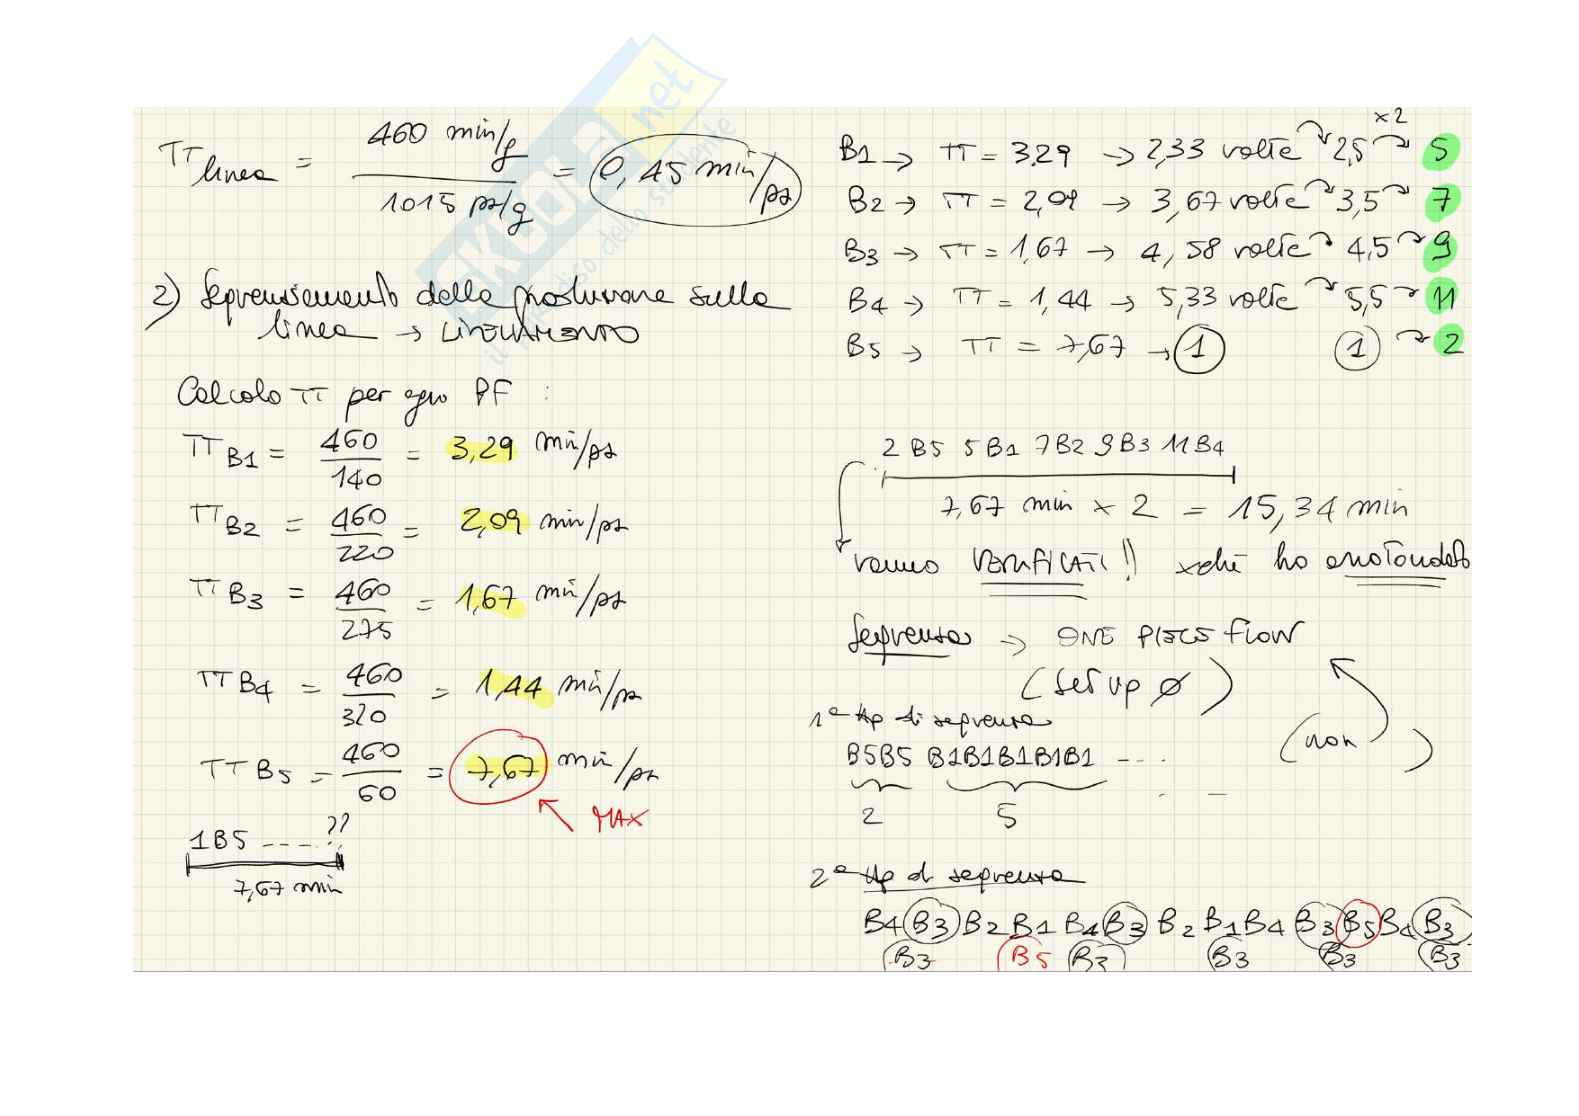 TT linea = 460 min/g / 1015 pz/g = 0,45 min/pz
2) Sequenziamento della produzione sulla
linea → LIVELLAMENTO
Calcolo TT per ogni PF :
TT B1 = 460/140 = 3,29 min/pz
TT B2 = 460/220 = 2,09 min/pz
TT B3 = 460/275 = 1,67 min/pz
TT B4 = 460/320 = 1,44 min/pz
TT B5 = 460/60 = 7,67 min/pz
MAX
1B5 ----- ??
7,67 min
x2
B1 → TT = 3,29 → 2,33 volte 2,5 5
B2 → TT = 2,09 → 3,67 volte 3,5 7
B3 → TT = 1,67 → 4,58 volte 4,5 9
B4 → TT = 1,44 → 5,33 volte 5,5 11
B5 → TT = 7,67 → 1 1 2
2 B5 5 B1 7 B2 9 B3 11 B4
7,67 min x 2 = 15,34 min
vanno VERIFICATI!! xché ho arrotondato
Sequenza → ONE PIECE FLOW
(set up ø)
(non )
1ª tip di sequenza
B5B5 B1B1B1B1B1 ----
2 5
2ª tip di sequenza
B4 B3 B2 B1 B4 B3 B2 B1 B4 B3 B5 B4 B3
B3 B5 B3 B3 B3 B3
SKUOLA.net